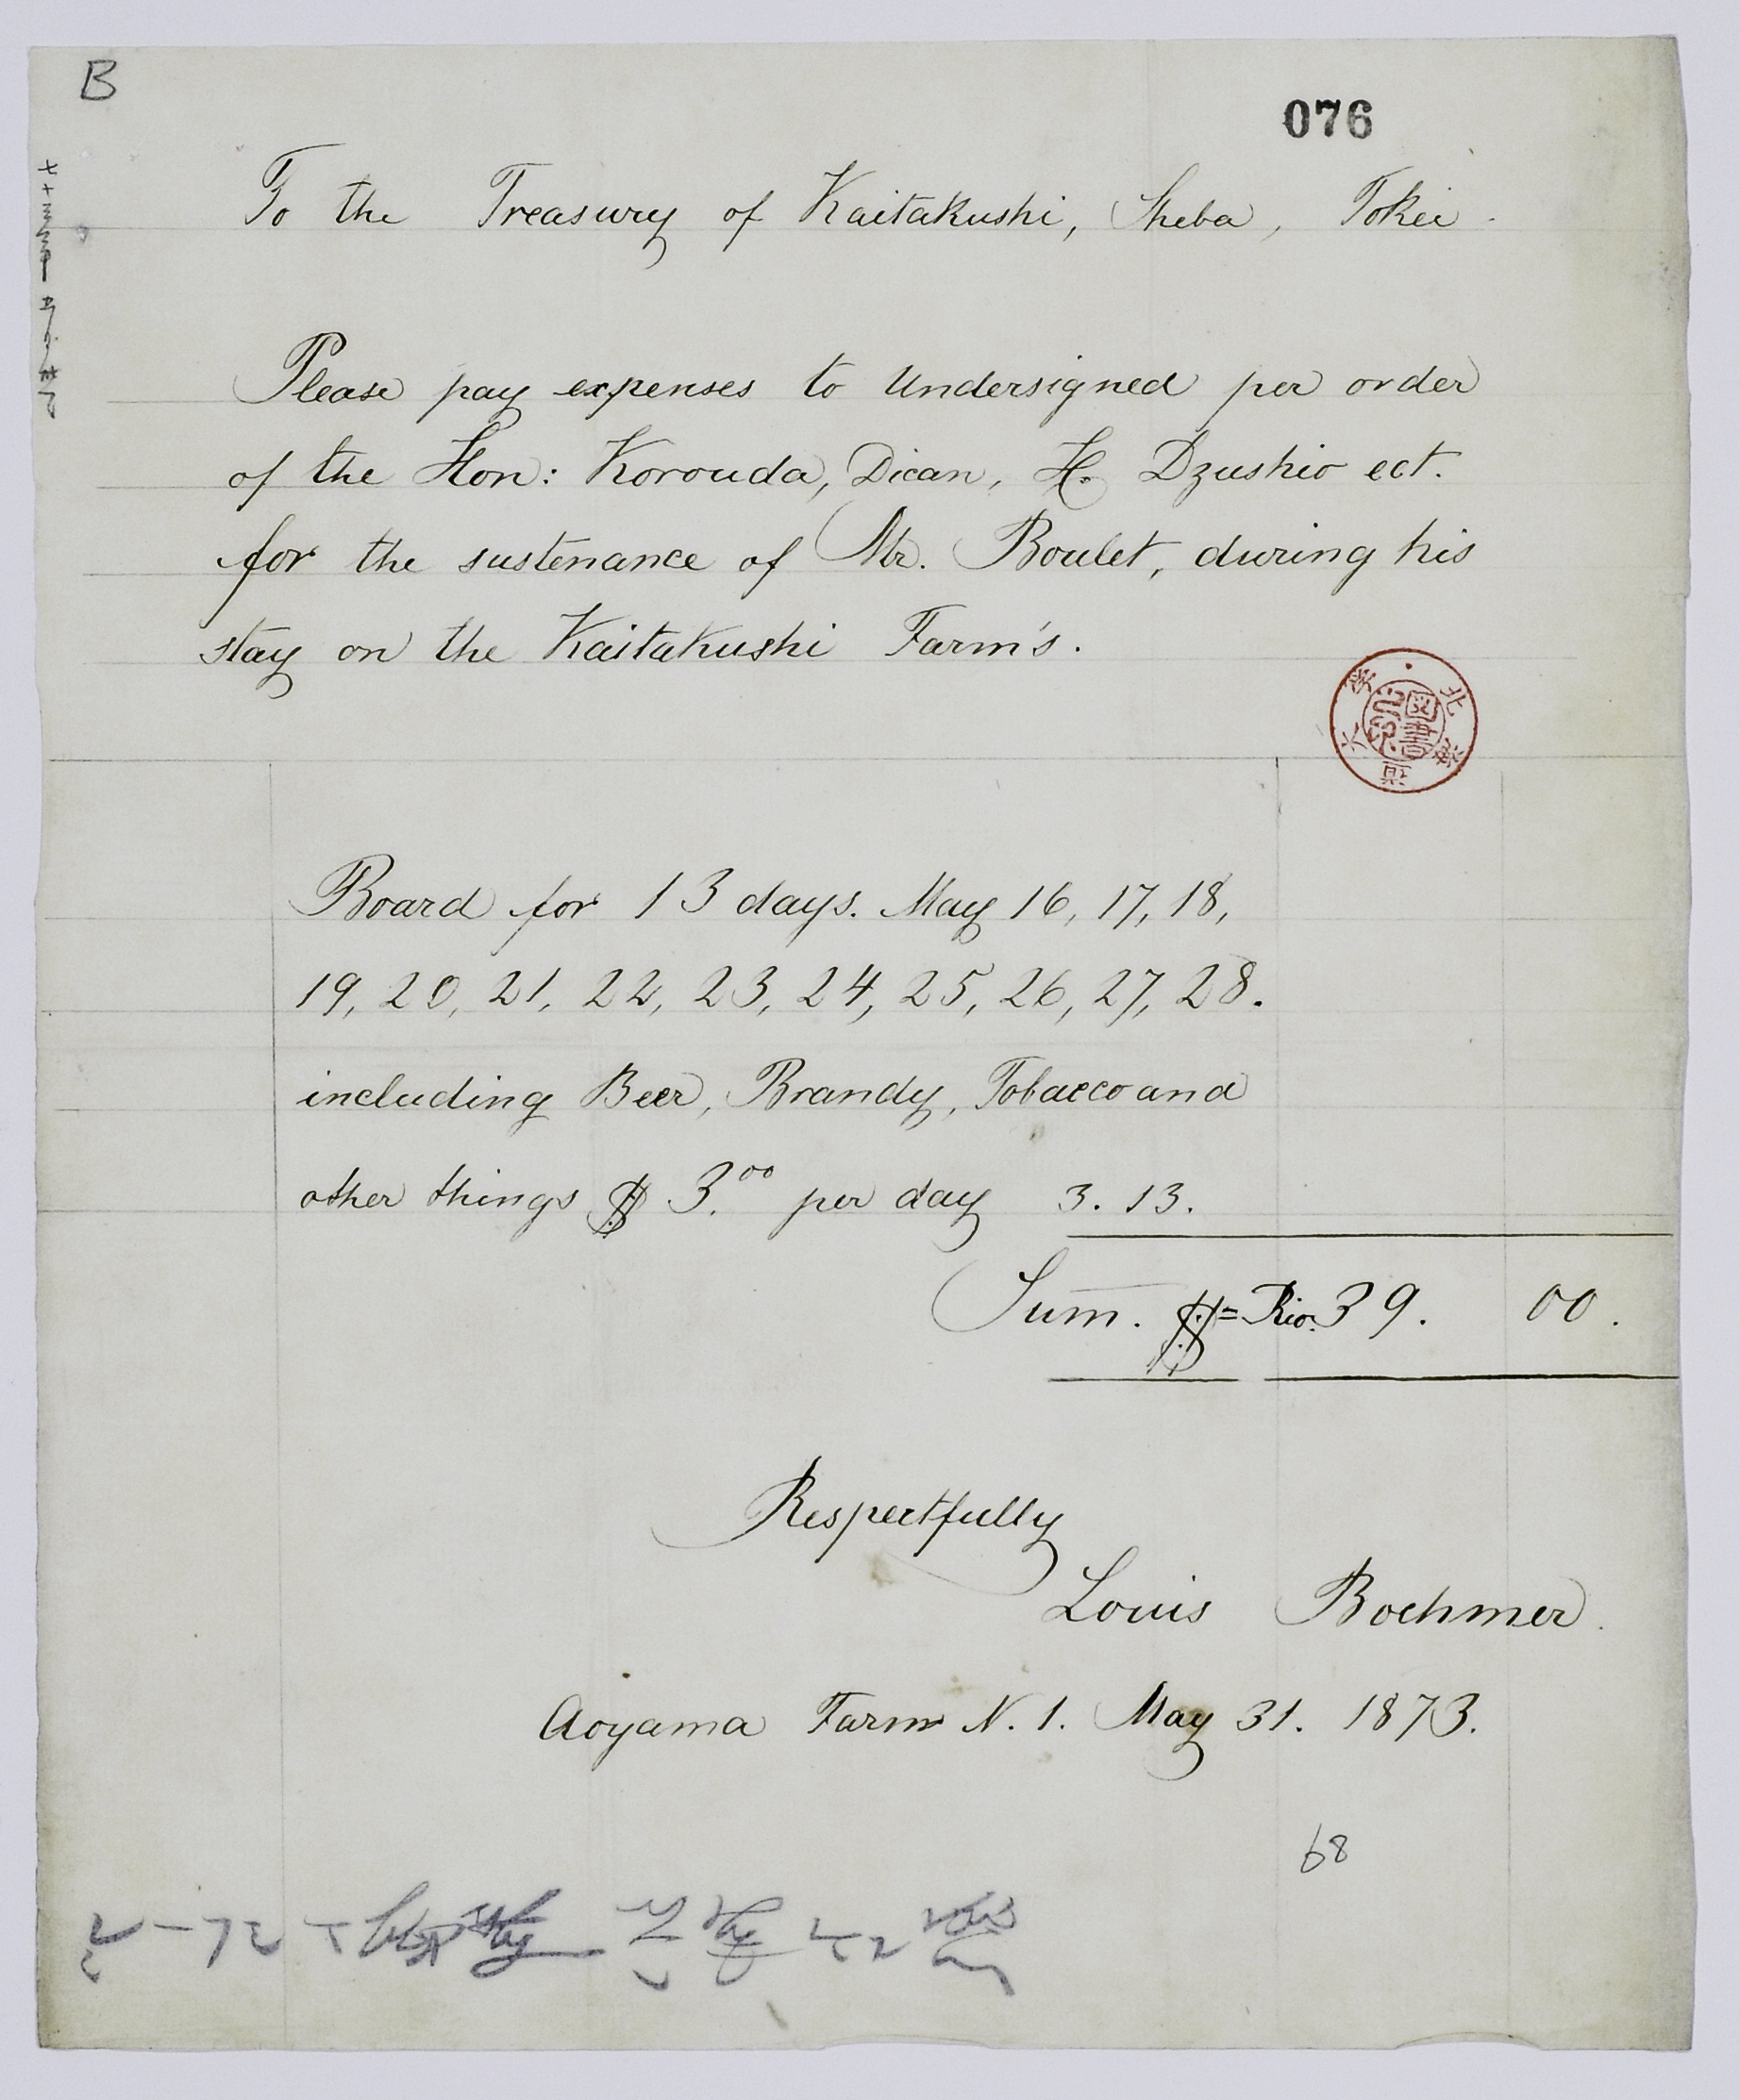 B
076
To the Treasury of Kaitakushi, Sheba, Tokei.
Please pay expenses to Undersigned per order
of the Hon: Korouda, Dican, H. Dzushio ect.
for the sustenance of Mr. Boulet, during his
stay on the Kaitakushi Farm's.
Board for 13 days. May 16, 17, 18,
19, 20, 21, 22, 23, 24, 25, 26, 27, 28.
including Beer, Brandy, Tobacco and
other things $ 3.00 per day 3. 13.
Sum. $ = Rio. 39. 00.
Respectfully
Louis Boehmer.
Aoyama Farm N. 1. May 31. 1873.
68